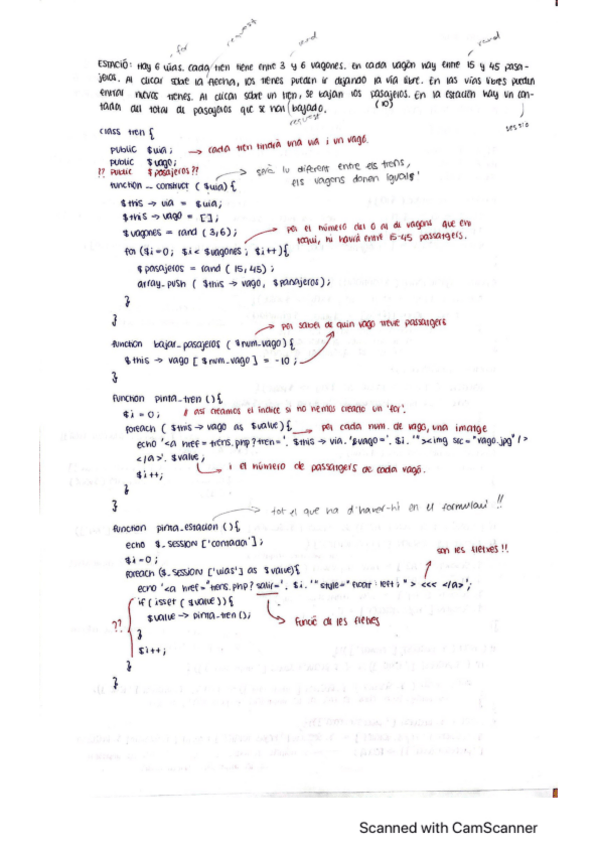 for
request
rand
rand
ESTACIÓ: Hay 6 vías. cada tren tiene entre 3 y 6 vagones. En cada vagón hay entre 15 y 45 pasa-
jeros. Al clicar sobre la flecha, los trenes pueden ir dejando la vía libre. En las vías libres pueden
entrar nuevos trenes. Al clicar sobre un tren, se bajan los pasajeros. En la estación hay un con-
tador del total de pasajeros que se han bajado. (10)
request
sessio
class tren {
public $via; → cada tren tindrà una via i un vagó.
public $vago;
?? Public $pasajeros ?? → serà lu diferent entre els trens,
els vagons donen iguals'
function __construct ($via) {
$this → via = $via;
$this → vago = [ ];
$vagones = rand (3,6); → per el número del 0 al de vagons que em
toqui, hi haurà entre 15-45 passatgers.
for ($i=0; $i< $vagones; $i++){
$pasajeros = rand (15,45);
array_push ( $this → vago, $pasajeros);
}
}
→ per saber de quin vago treure passatgers
function bajar_pasajeros ($num_vago) {
$this → vago [ $num_vago ] = -10;
}
function pinta_tren () {
$i = 0; # así creamos el índice si no hemos creado un 'for'.
foreach ( $this → vago as $value) { → per cada num. de vagó, una imatge
echo '<a href = trens.php?tren='. $this → via. '&vago='. $i. '"><img src = "vago.jpg"/>
</a>'. $value;
→ i el número de passatgers de cada vagó.
$i++;
}
}
→ tot el que ha d'haver-hi en el formulari !!
function pinta_estacion () {
echo $_SESSION ['contador'];
$i=0;
son les fletxes!!
foreach ($_SESSION ['vias'] as $value) {
echo '<a href="trens.php? salir='. $i. '" style="float:left;" > <<< </a>';
?? if (isset ($value)) {
$value → pinta_tren(); → Funció de les fletxes
}
$i++;
}
}
Scanned with CamScanner